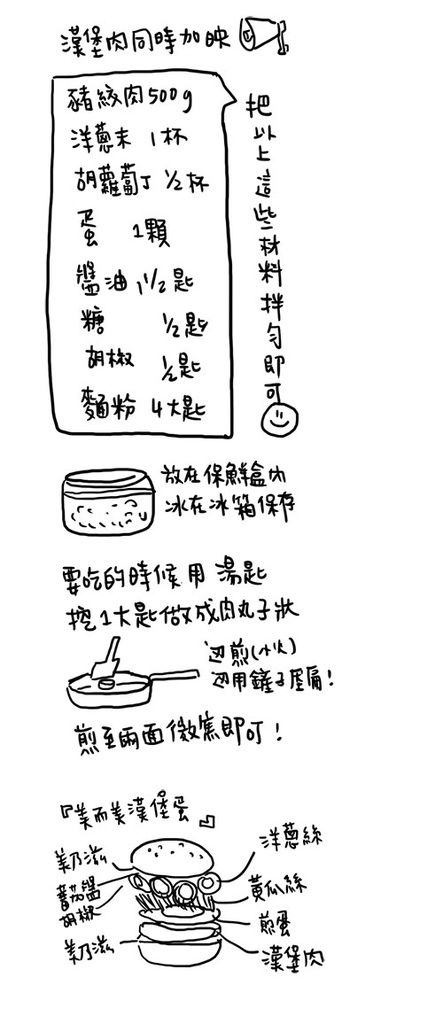 漢堡肉同時加映
豬絞肉500g
洋蔥末 1杯
胡蘿蔔丁 ½杯
蛋 1顆
醬油 1½匙
糖 ½匙
胡椒 ½匙
麵粉 4大匙
把以上這些材料拌勻即可
放在保鮮盒內
冰在冰箱保存
要吃的時候用湯匙
挖1大匙做成肉丸子狀
边煎(小火)
边用鏟子壓扁!
煎至兩面微焦即可!
『美而美漢堡蛋』
美乃滋
蕃茄醬
胡椒
美乃滋
洋蔥絲
黃瓜絲
煎蛋
漢堡肉